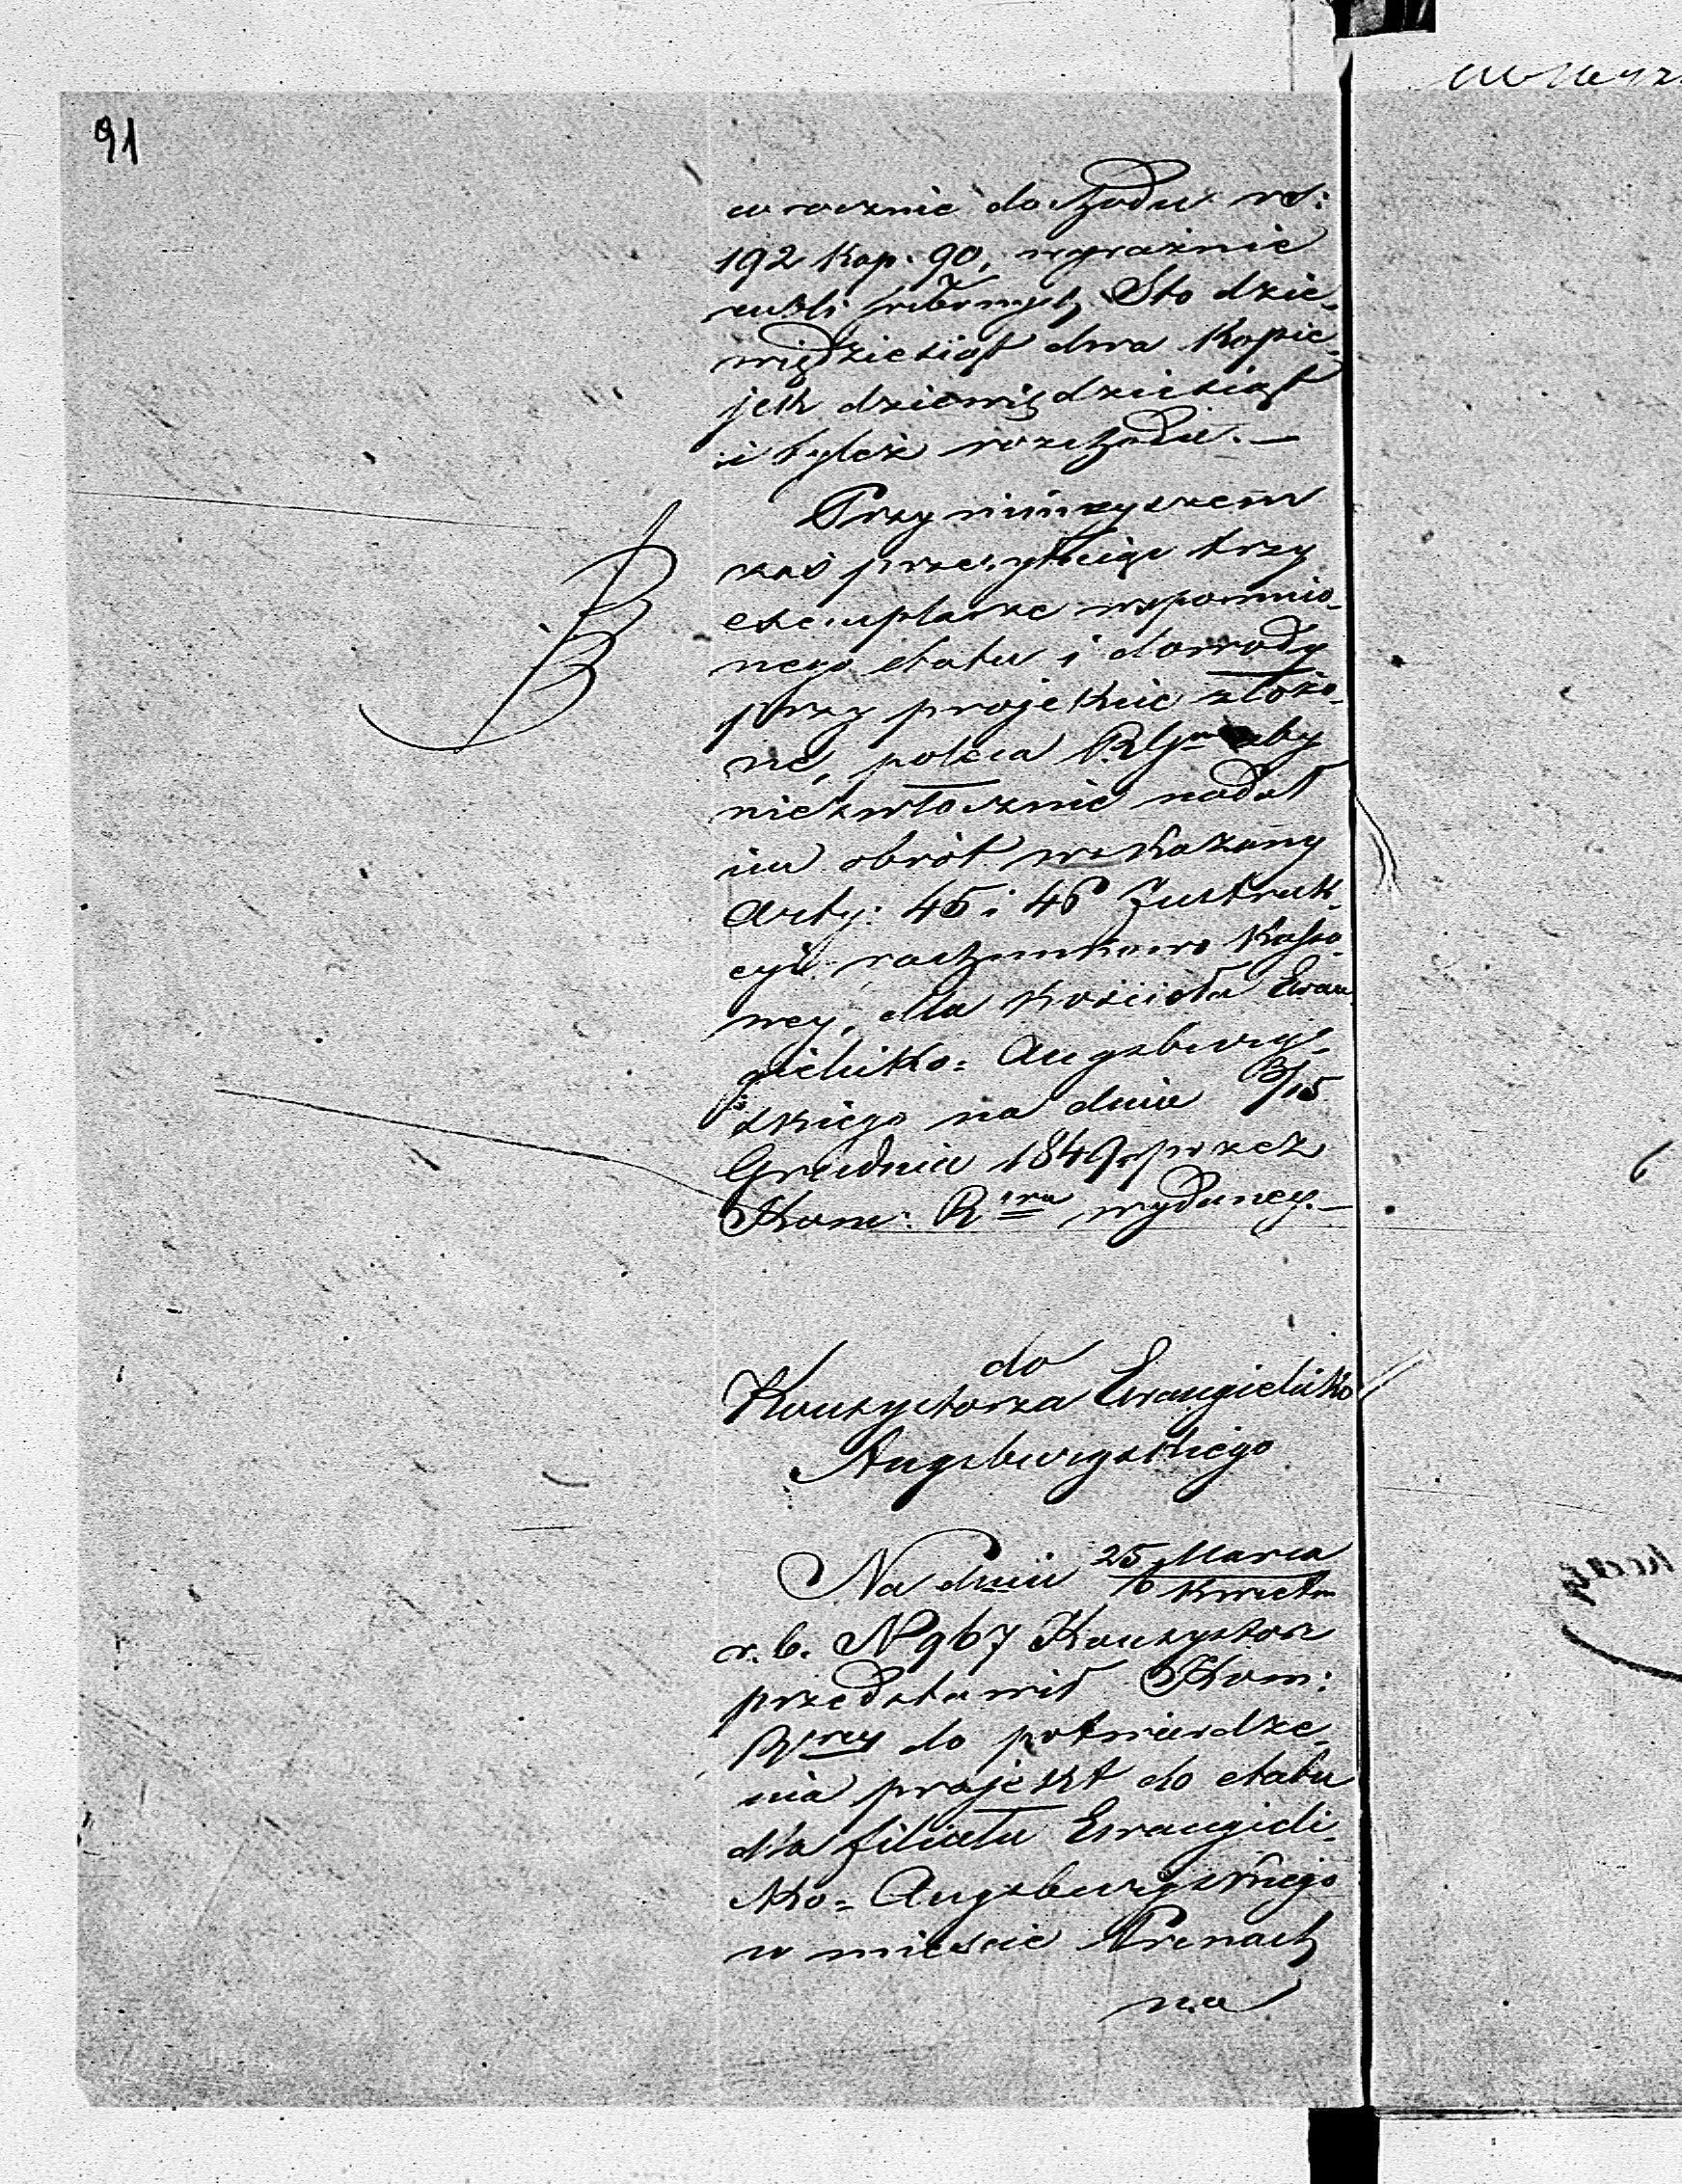 91
w rocznie dochodu rs:
192 kop. 90, wyraźnie
rubli srebrnych Sto dzie-
więdziesiąt dwa kopie-
jek dziewiędziesiąt
i tyleż rozchodu. —
Przy niniejszem
zaś przesyłając trzy
exemplarze wspomnio-
nego etatu i dowody
przy projekcie złożo-
ne, poleca aby
niezwłocznie nadał
im obrót wskazany
Arty: 45 i 46 Instruk-
cyi rachunkowo kasso-
wey, dla kościoła Ewan-
gielicko= Augsburg-
skiego na dniu 3/15
Grudnia 1849 r. przez
Kom: R wydaney. —
do
Konsystorza Ewangielicko
Augsburgskiego
Na dniu 25 Marca
6 Kwietn
r. b. N 967 Konsystorz
przedstawił Kom:
Rwey do potwierdze-
nia projekt do etatu
dla filiału Ewangieli-
cko= Augsburgskiego
w mieście Prenach
na